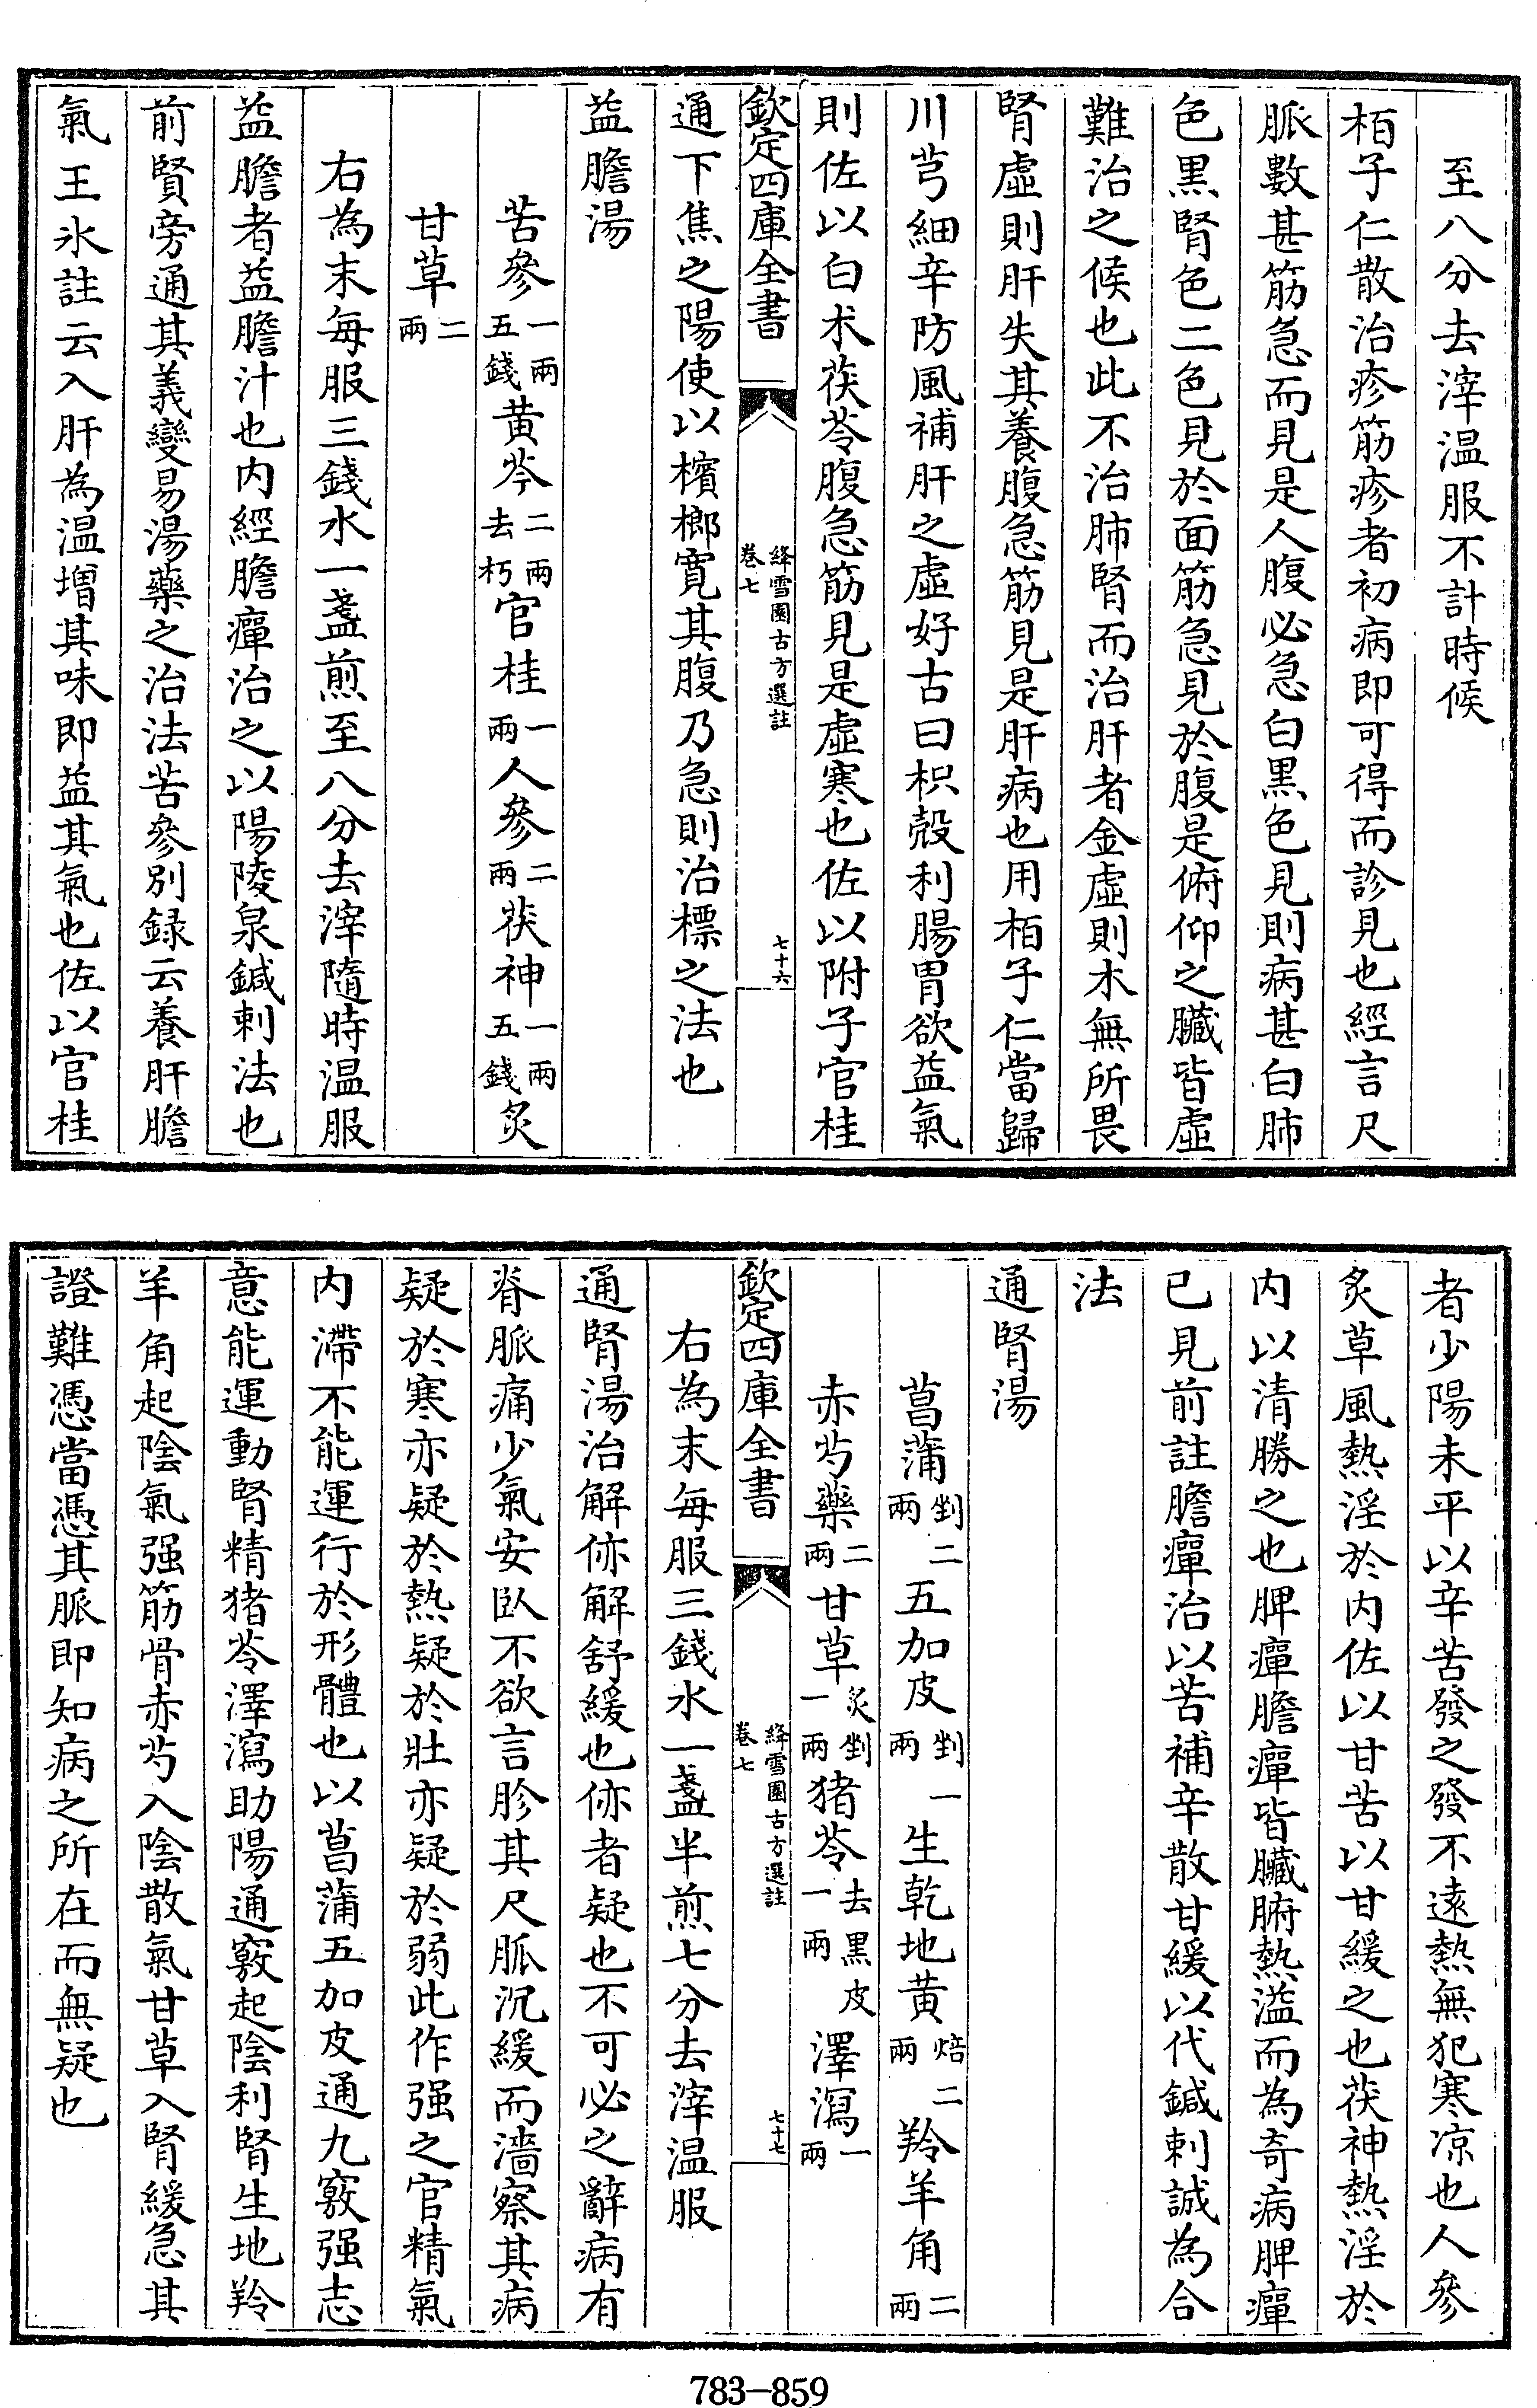 至八分去滓温服不計時候
栢子仁散治疹筋疹者初病即可得而診見也經言尺
脈數甚筋急而見是人腹必急白黑色見則病甚白肺
色黑腎色二色見於面筋急見於腹是俯仰之臟皆虛
難治之候也此不治肺腎而治肝者金虛則木無所畏
腎虛則肝失其養腹急筋見是肝病也用栢子仁當歸
川芎細辛防風補肝之虛好古曰枳殼利腸胃欲益氣
則佐以白术茯苓腹急筋見是虛寒也佐以附子官桂
欽定四庫全書 絳雪園古方選註 卷七 七十六
通下焦之陽使以檳榔寛其腹乃急則治標之法也
益膽湯
苦參一兩五錢黄芩二兩去朽官桂一兩人參二兩茯神一兩五錢炙
甘草二兩
右為末每服三錢水一盞煎至八分去滓隨時温服
益膽者益膽汁也内經膽癉治之以陽陵泉鍼刺法也
前賢旁通其義變易湯藥之治法苦參別録云養肝膽
氣王氷註云入肝為温增其味即益其氣也佐以官桂
者少陽未平以辛苦發之發不逺熱無犯寒凉也人參
炙草風熱淫於内佐以甘苦以甘緩之也茯神熱淫於
内以清勝之也脾癉膽癉皆臟腑熱溢而為奇病脾癉
已見前註膽癉治以苦補辛散甘緩以代鍼刺誠為合
法
通腎湯
菖蒲剉二兩五加皮剉一兩生乾地黄焙二兩羚羊角二兩
赤芍藥二兩甘草炙剉一兩猪苓去黑皮一兩澤瀉一兩
欽定四庫全書 絳雪園古方選註 卷七 七十七
右為末每服三錢水一盞半煎七分去滓温服
通腎湯治解㑊解舒緩也㑊者疑也不可必之辭病有
脊脈痛少氣安臥不欲言胗其尺脈沉緩而濇察其病
疑於寒亦疑於熱疑於壯亦疑於弱此作强之官精氣
内滯不能運行於形體也以菖蒲五加皮通九竅强志
意能運動腎精猪苓澤瀉助陽通竅起陰利腎生地羚
羊角起陰氣强筋骨赤芍入陰散氣甘草入腎緩急其
證難憑當憑其脈即知病之所在而無疑也
783-859